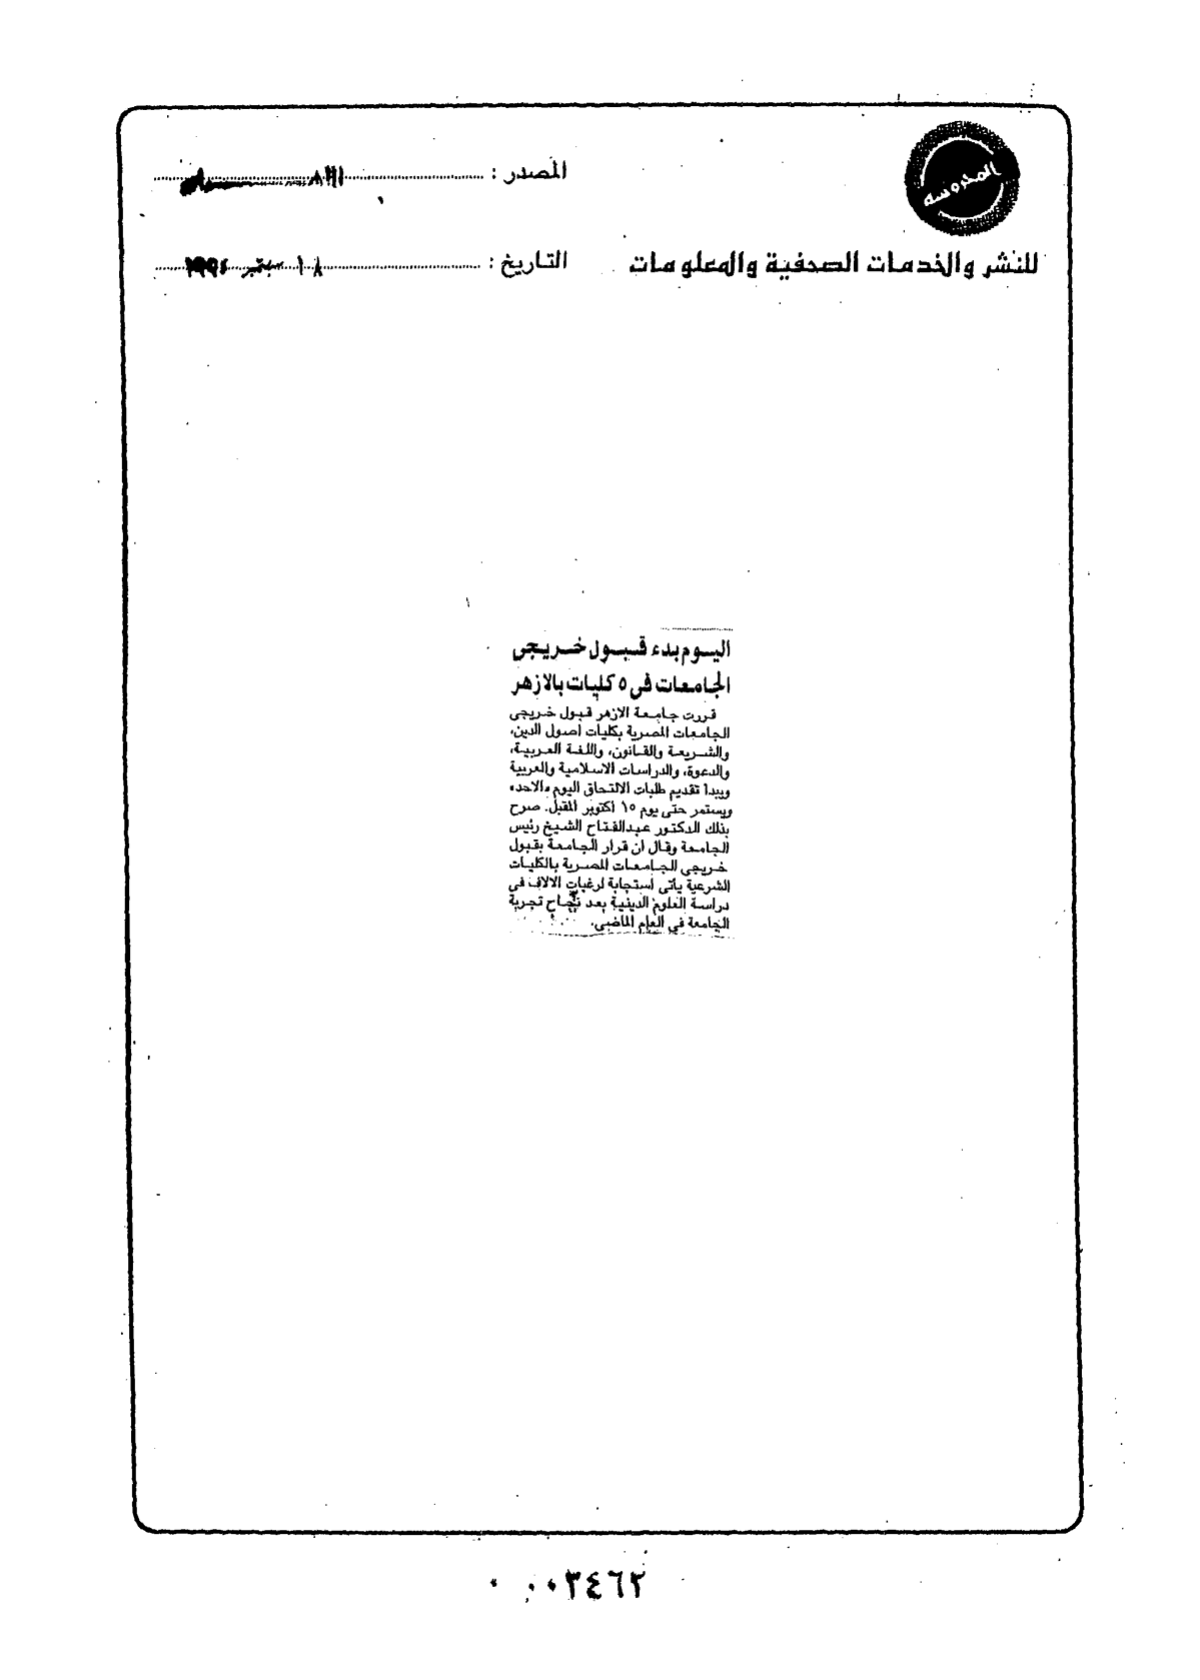 المحروسه
للنشر والخدمات الصحفية والمعلومات
المصدر :
التاريخ : ١٨ سبتمبر ١٩٩٤
اليوم بدء قبول خريجى
الجامعات فى ٥ كليات بالازهر
قررت جامعة الازهر قبول خريجى
الجامعات المصرية بكليات اصول الدين،
والشريعة والقانون، واللغة العربية،
والدعوة، والدراسات الاسلامية والعربية
ويبدأ تقديم طلبات الالتحاق اليوم «الاحد»
ويستمر حتى يوم ١٥ اكتوبر المقبل. صرح
بذلك الدكتور عبدالفتاح الشيخ رئيس
الجامعة وقال ان قرار الجامعة بقبول
خريجى الجامعات المصرية بالكليات
الشرعية يأتى استجابة لرغبات الالاف فى
دراسة العلوم الدينية بعد نجاح تجربة
الجامعة في العام الماضى.
٠ ٠٠٣٤٦٢